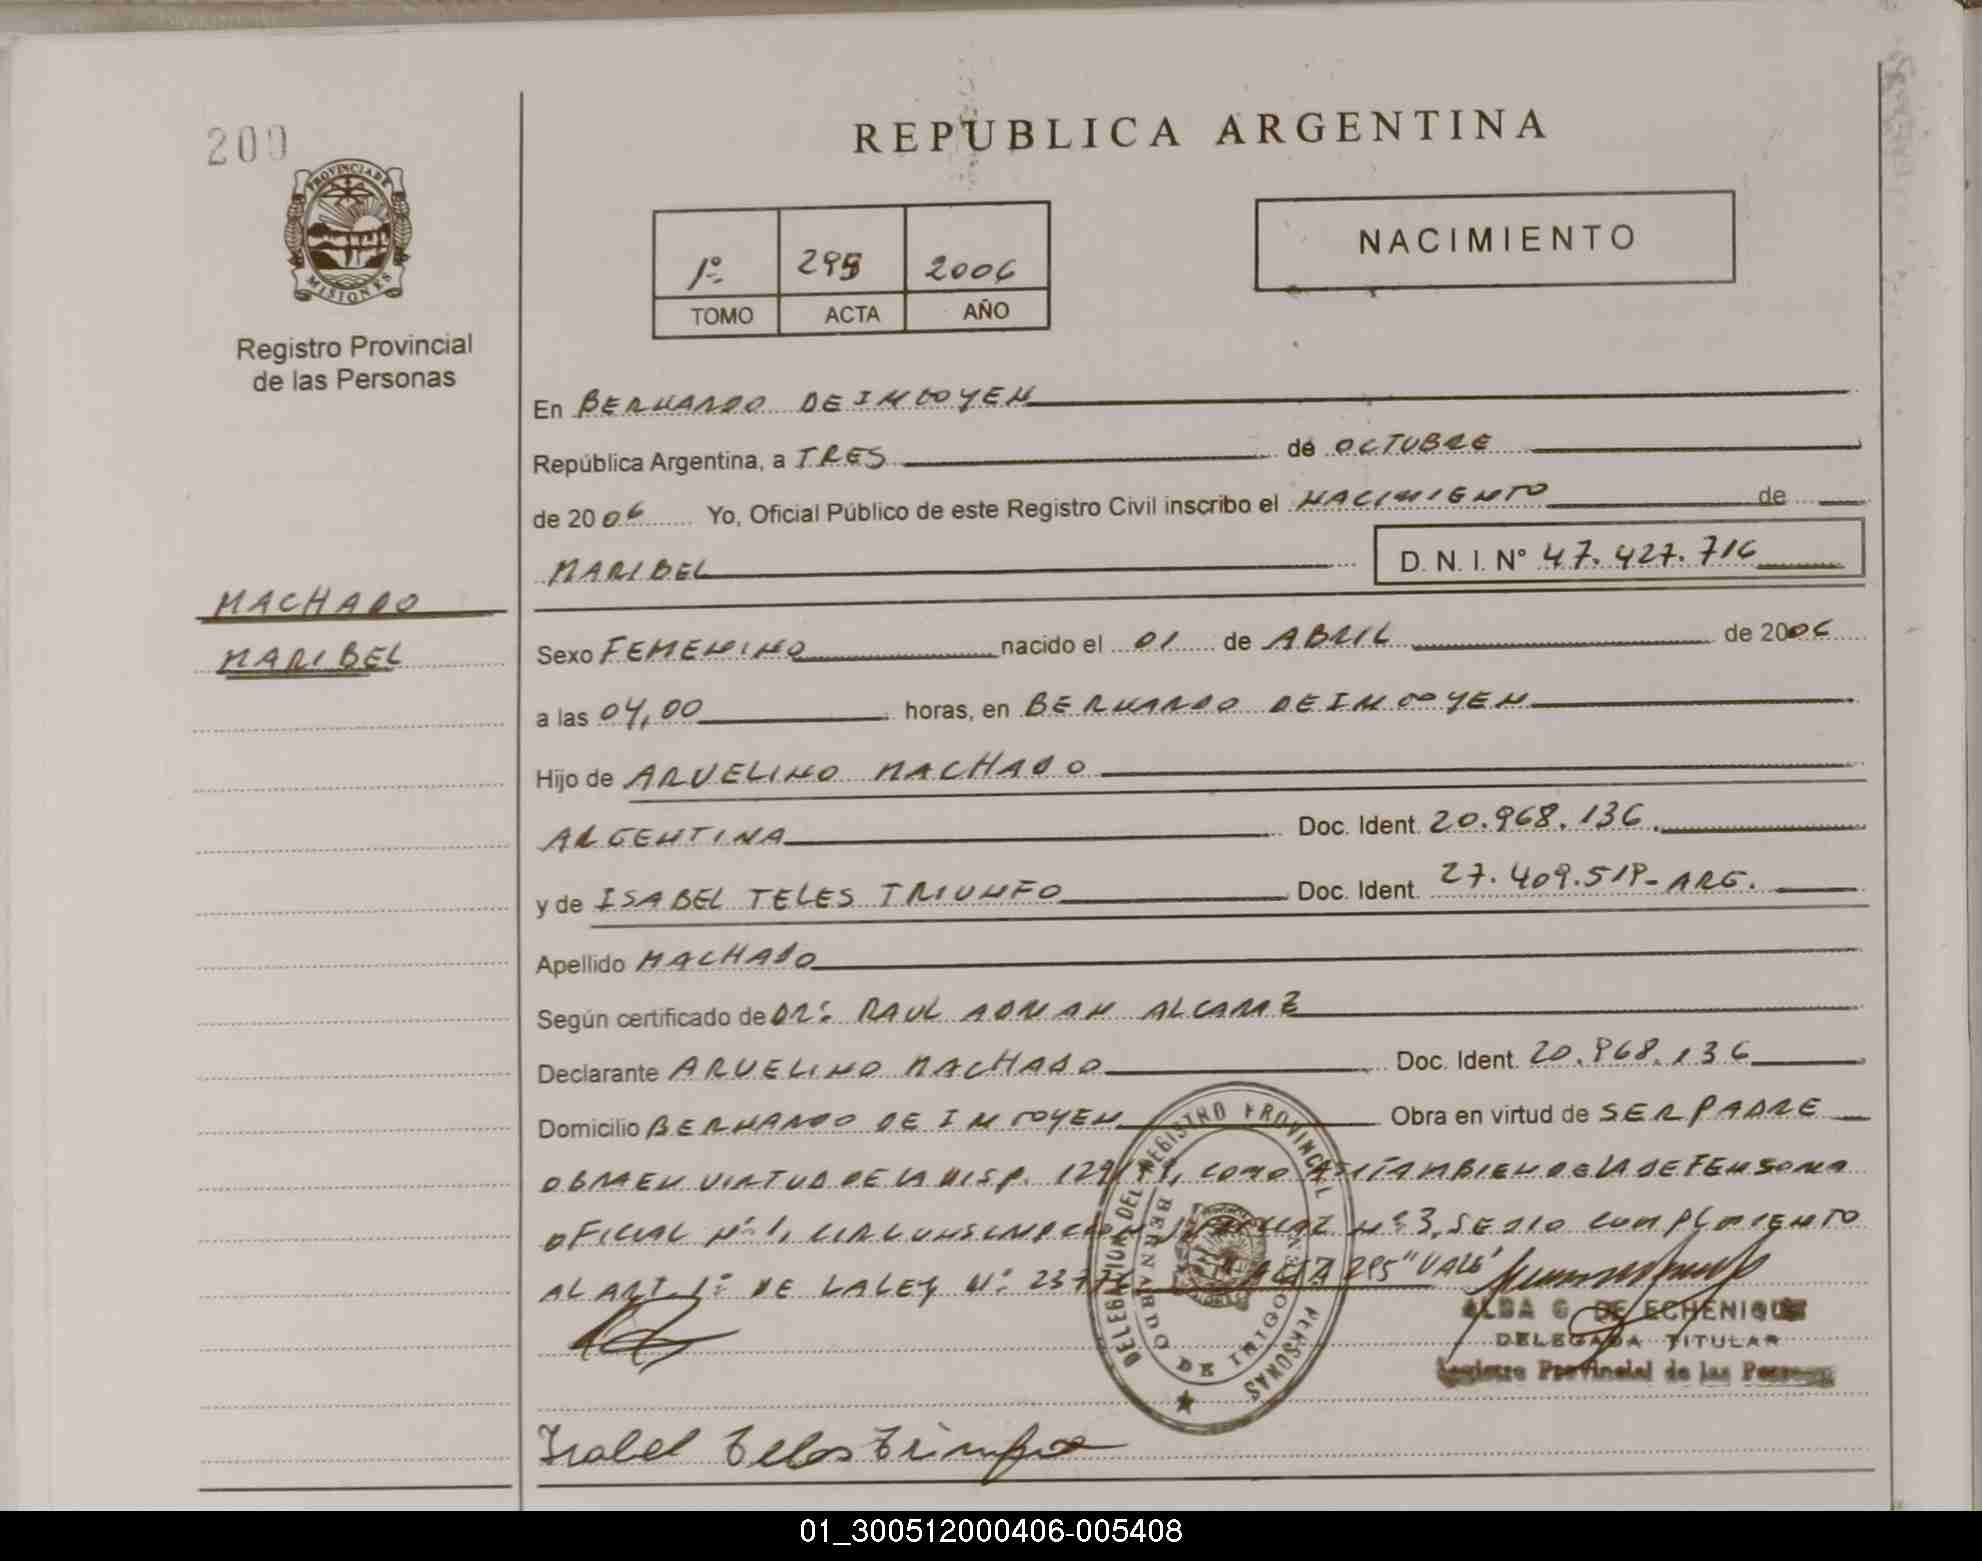 200
PROVINCIA DE
MISIONES
Registro Provincial
de las Personas
REPUBLICA ARGENTINA
1º 295 2006
TOMO ACTA AÑO
NACIMIENTO
En BERNARDO DE IRIGOYEN
República Argentina, a TRES de OCTUBRE
de 2006 Yo, Oficial Público de este Registro Civil inscribo el NACIMIENTO de
MARIBEL D. N. I. Nº 47.427.716
MACHADO
MARIBEL
Sexo FEMENINO nacido el 01 de ABRIL de 2006
a las 04,00 horas, en BERNARDO DE IRIGOYEN
Hijo de ARVELINO MACHADO
ARGENTINA Doc. Ident. 20.968.136
y de ISABEL TELES TRIUNFO Doc. Ident. 27.409.519- ARG.
Apellido MACHADO
Según certificado de DR: RAUL ADRIAN ALCARAZ
Declarante ARVELINO MACHADO Doc. Ident. 20.968.136
Domicilio BERNARDO DE IRIGOYEN Obra en virtud de SER PADRE
OBRA EN VIRTUD DE LA DISP. COMO ASI TAMBIEN DE LA DEFENSORIA
OFICIAL Nº 1, CIRCUNSCRIPCION JUDICIAL Nº 3, SE DIO CUMPLIMIENTO
AL ART. 1º DE LA LEY Nº ACTA 295 "VALE"
DELEGACION DEL REGISTRO PROVINCIAL PERSONAS
BERNARDO DE IRIGOYEN
ALBA G. DE ECHENIQUE
DELEGADA TITULAR
Registro Provincial de las Personas
Isabel Teles Triunfo
01_300512000406-005408